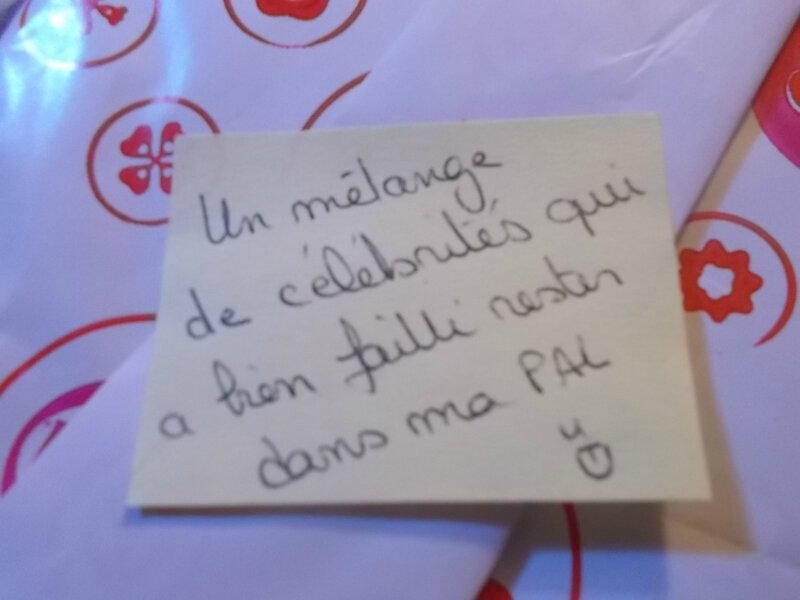 Un mélange
de célébrités qui
a bien failli rester
dans ma PAL